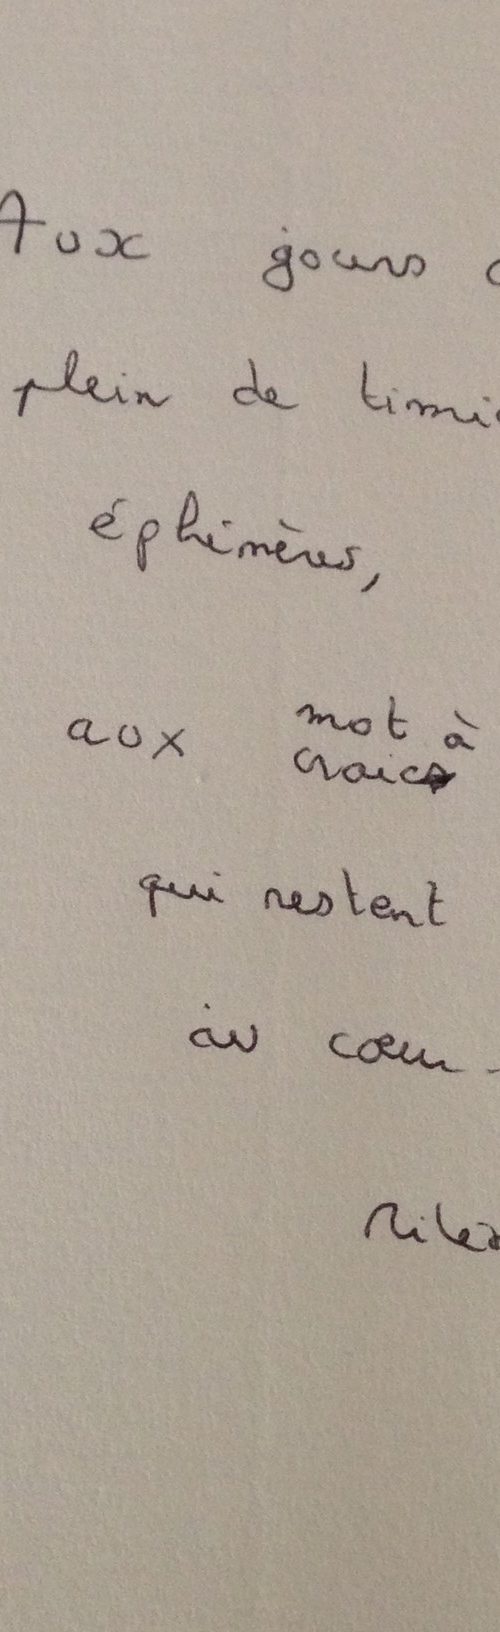 Aux jours
plein de timi
éphémères,
aux mot à
qui restent
au cœur